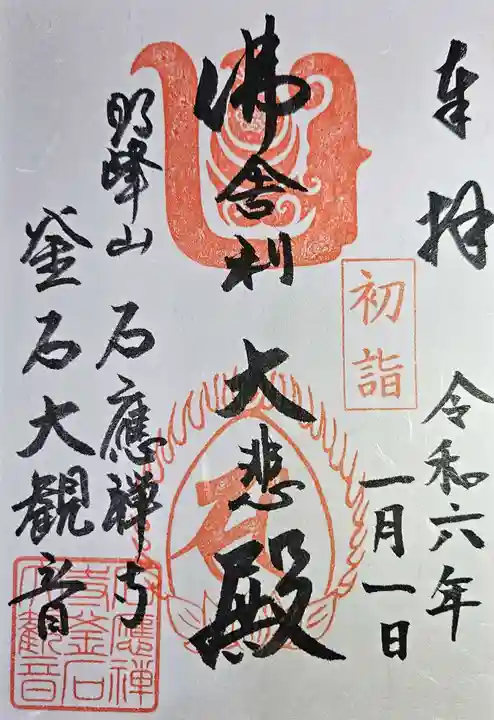 奉拝
令和六年
一月一日
初詣
佛舎利 大悲殿
明峰山 石應禅寺
釜石大観音
石應禅
寺釜石
大観音